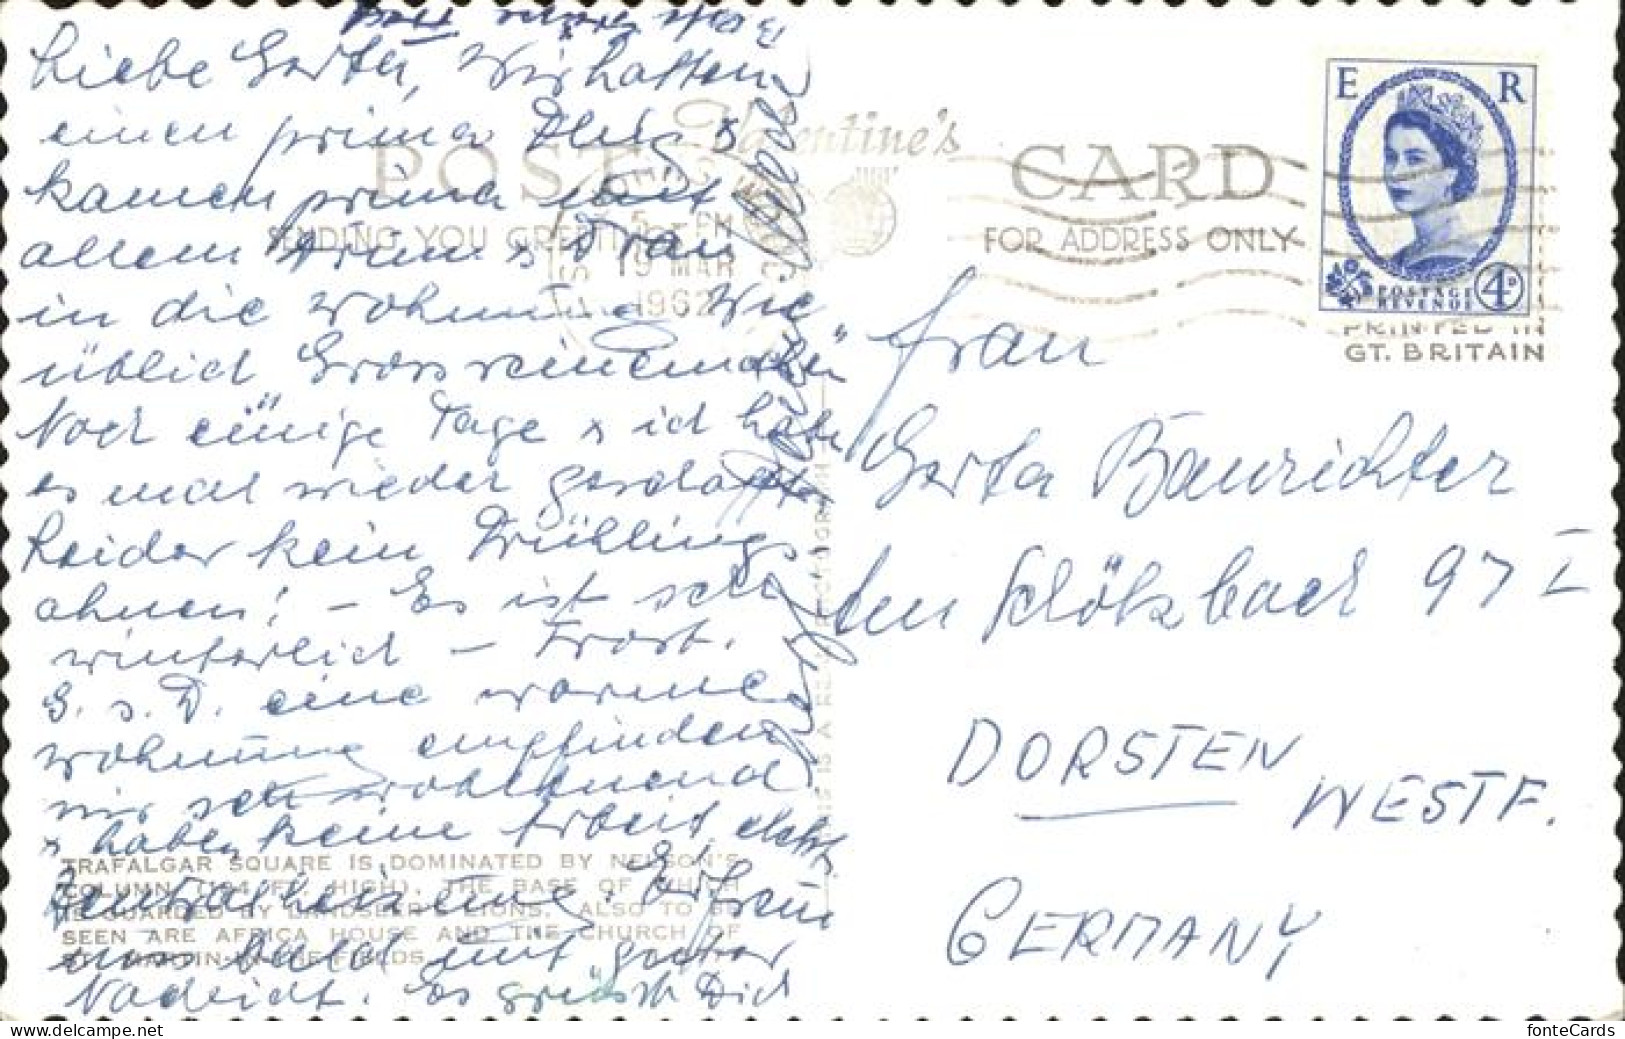 Liebe Gerta, Wir hatten
einen prima Flug &
kamen prima mit
allem
in die Wohnung Wie
üblich Grossreinemachen
Noch einige Tage & ich habe
es mal wieder geschafft
Leider kein Frühlings
ahnen! – Es ist sehr
winterlich – Frost.
G. s. D. eine warme
Wohnung empfinden
wir sehr wohltuend
& haben keine Arbeit durch
Zentralheizung. Erfreu
uns bald mit guter
Nachricht. Es grüsst Dich
POST CARD
Valentine's
SENDING YOU GREETINGS
FOR ADDRESS ONLY
5 - PM
19 MAR
1962
E R
POSTAGE
REVENUE
4D
PRINTED IN
GT. BRITAIN
Frau
Gerta Baurichter
Am Schölzbach 97 I
DORSTEN
WESTF.
GERMANY
THIS IS A REAL PHOTOGRAPH
TRAFALGAR SQUARE IS DOMINATED BY NELSON'S
COLUMN (184 FT. HIGH), THE BASE OF WHICH
IS GUARDED BY LANDSEER'S LIONS. ALSO TO BE
SEEN ARE AFRICA HOUSE AND THE CHURCH OF
ST. MARTIN-IN-THE-FIELDS.
fonteCards